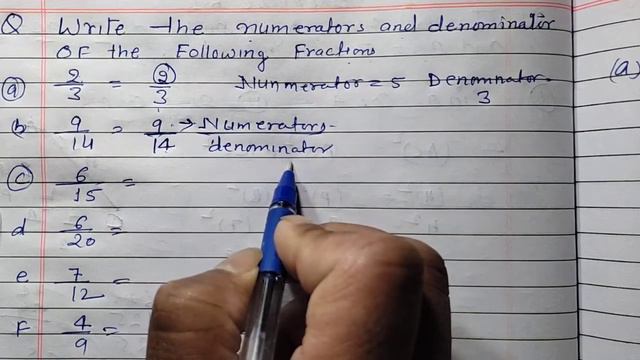 Q Write the numerators and denominator
OF the Following Fractions
(a) 2/3 = 2/3 Nunmerator = 5 Denomnator
3
(b) 9/14 = 9/14 → Numerators
denominator
(c) 6/15 =
d 6/20 =
e 7/12 =
F 4/9 =
(a)